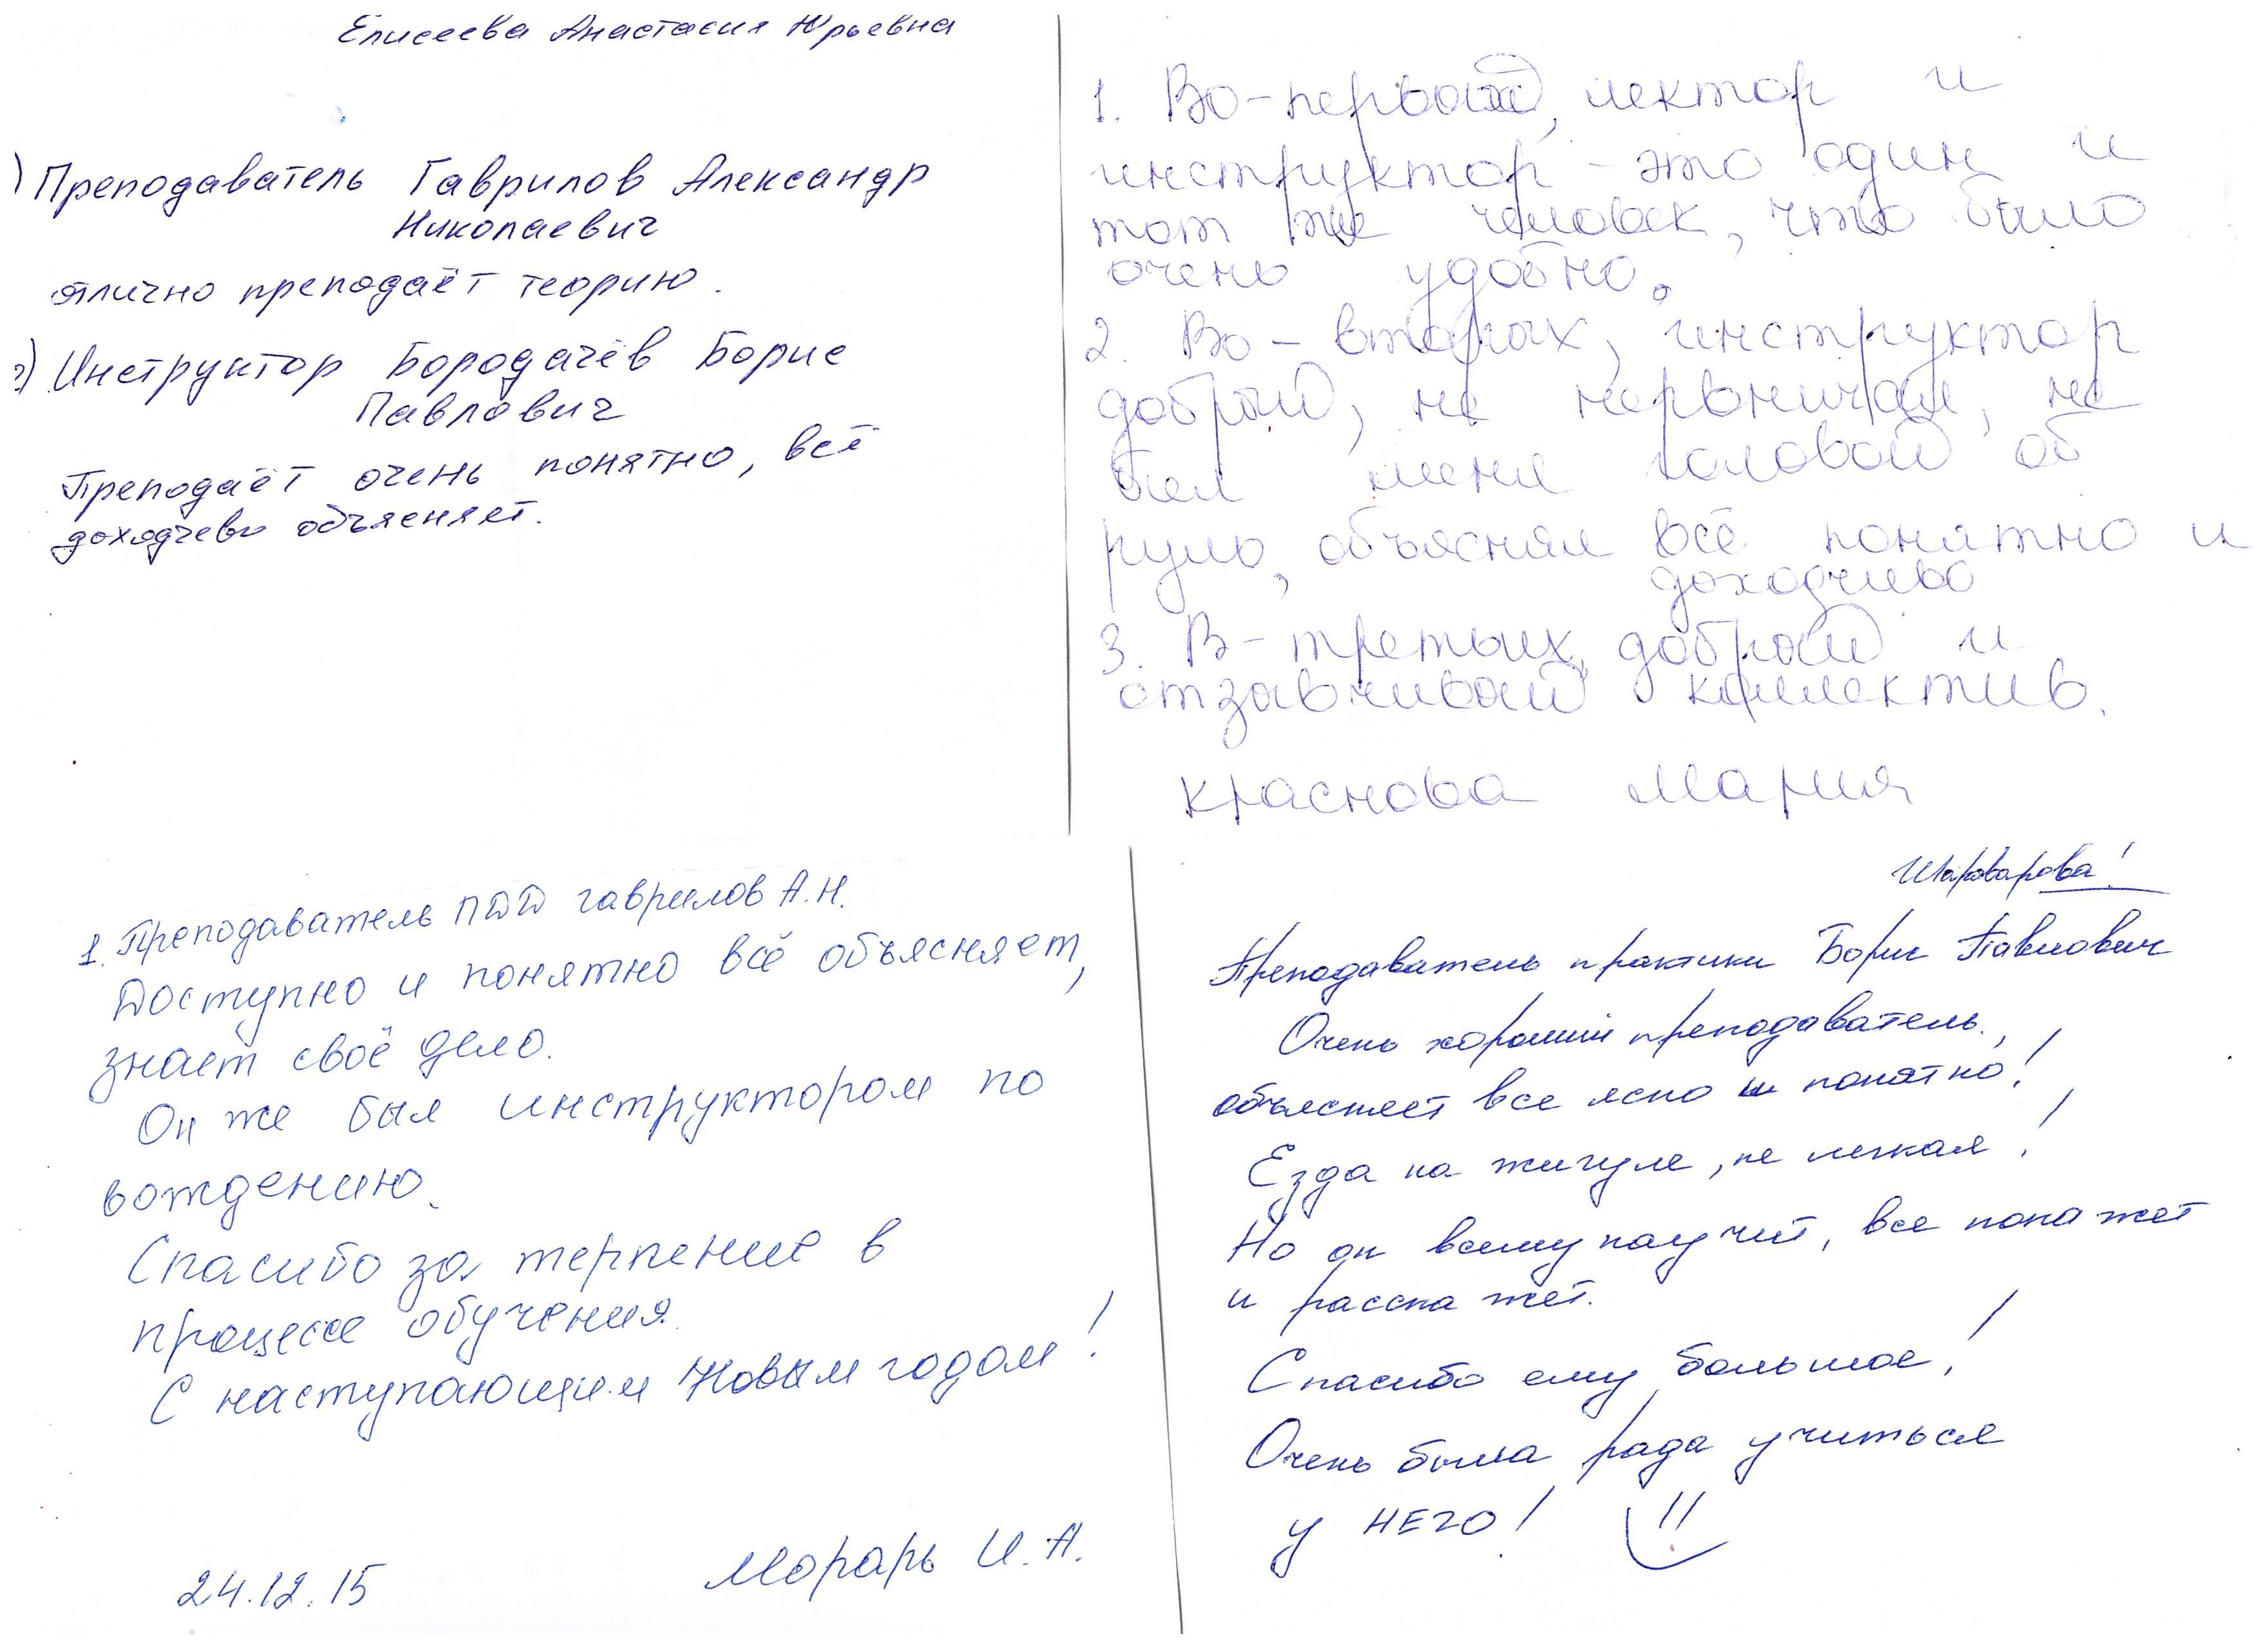 Елисеева Анастасия Юрьевна
1) Преподаватель Гаврилов Александр
Николаевич
отлично преподаёт теорию.
2) Инструктор Бородачёв Борис
Павлович
Преподаёт очень понятно, всё
доходчево объясняет.
1. Во-первых, лектор и
инструктор - это один и
тот же человек, что было
очень удобно.
2. Во-вторых, инструктор
добрый, не нервничал, не
бил меня головой об
руль, объяснял всё понятно и
доходчиво
3. В-третьих, добрый и
отзывчивый коллектив.
Краснова Мария
1. Преподаватель ПДД Гаврилов А.Н.
Доступно и понятно всё объясняет,
знает своё дело.
Он же был инструктором по
вождению.
Спасибо за терпение в
процессе обучения.
С наступающим Новым годом!
24.12.15 Морарь И.А.
Шароварова!
Преподаватель практики Борис Павлович
Очень хороший преподаватель,
объясняет все ясно и понятно!
Езда на жигуле, не легкая!
Но он всему научит, все покажет
и расскажет.
Спасибо ему большое!
Очень была рада учиться
у НЕГО!